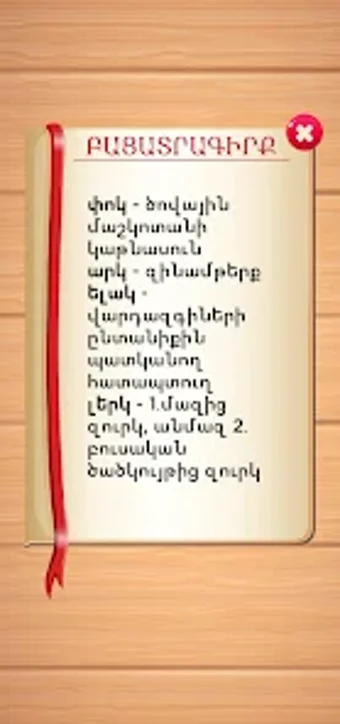 ԲԱՑԱՏՐԱԳԻՐՔ
փոկ - ծովային
մաշկոտանի
կաթնասուն
արկ - զինամթերք
ելակ -
վարդազգիների
ընտանիքին
պատկանող
հատապտուղ
լերկ - 1.մազից
զուրկ, անմազ 2.
բուսական
ծածկույթից զուրկ